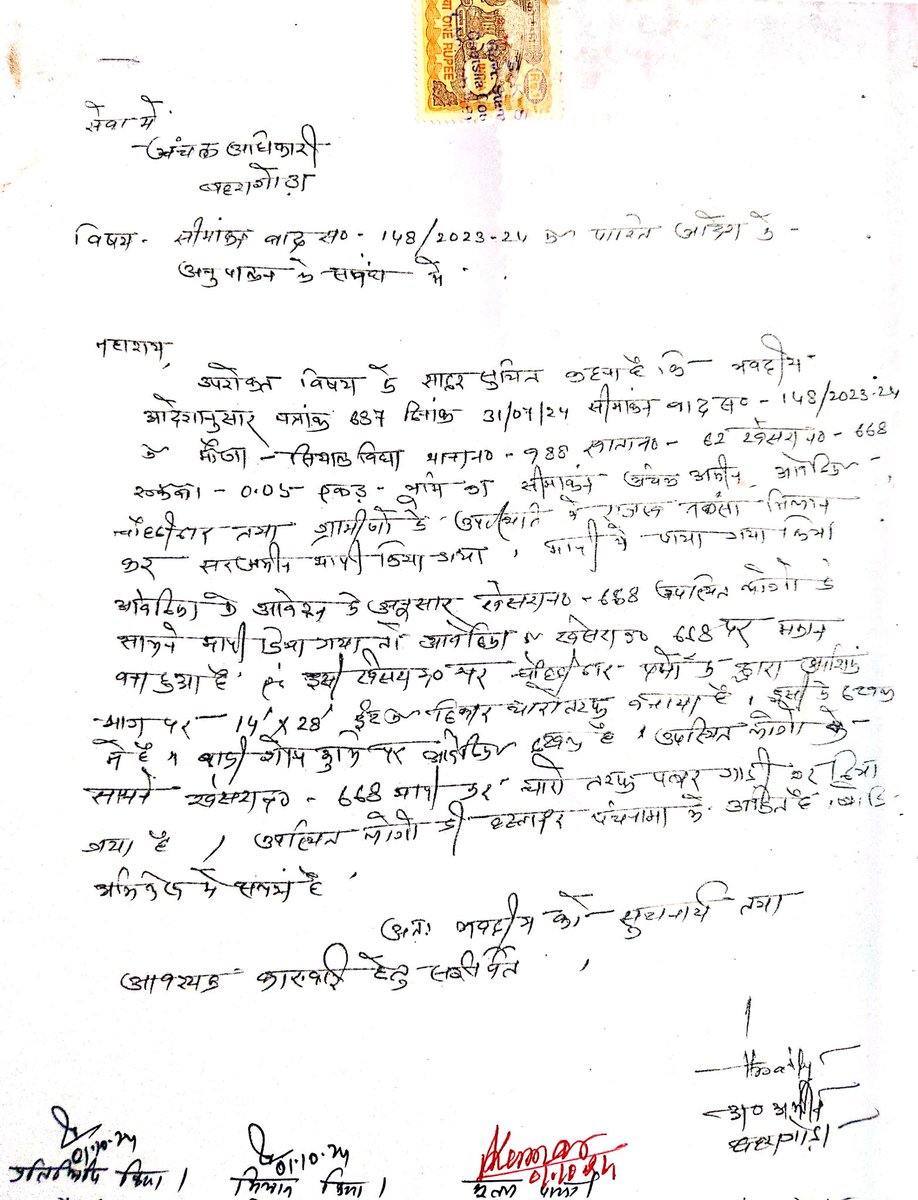 ONE RUPEE
सेवा में
अंचल अधिकारी
बहरागोड़ा
विषय - सीमांकन वाद स० - 148/2023-24 के पारित आदेश के
अनुपालन के संबंध में
महाशय,
उपरोक्त विषय के सादर सुचित कहना है कि भवदीय
आदेशानुसार पत्रांक 687 दिनांक 31/07/24 सीमांकन वाद स० - 148/2023-24
के मौजा - थाना न० - 988 खाता न० - 62 खेसरा न० - 668
रकवा - 0.05 एकड़ भूमि का सीमांकन अंचल अमीन, आवेदिका
चौहद्दीदार तथा ग्रामीणों के उपस्थिति में राजस्व नक्सा मिलान
कर सरजमीन मापी किया गया, मापी में पाया गया कि
आवेदिका के आवेदन के अनुसार खेसरा न० - 668 उपस्थित लोगो के
सामने मापी किया गया तो आवेदिका खेसरा न० 668 पर मकान
बना हुआ है इसी खेसरा न० पर चौहद्दीदार के द्वारा आंशिक
भाग पर 14' X 28' ईट चारो तरफ बनाया है, इसी के दखल
में है बाकी शेष भूमि पर आवेदिका दखल है उपस्थित लोगो के
सामने खेसरा न० - 668 मापी कर चारो तरफ पत्थर गाड़ी कर दिया
गया है, उपस्थित लोगो की हस्ताक्षर पंचनामा में अंकित है
अभिलेख में संलग्न है
अतः भवदीय को सुचनार्थ तथा
आवश्यक कारवाई हेतु समर्पित,
अ० अमीन
बहरागोड़ा
01.10.24
01.10.24
Kumar
01.10.24
प्रतिलिपि किया।
मिलान किया।